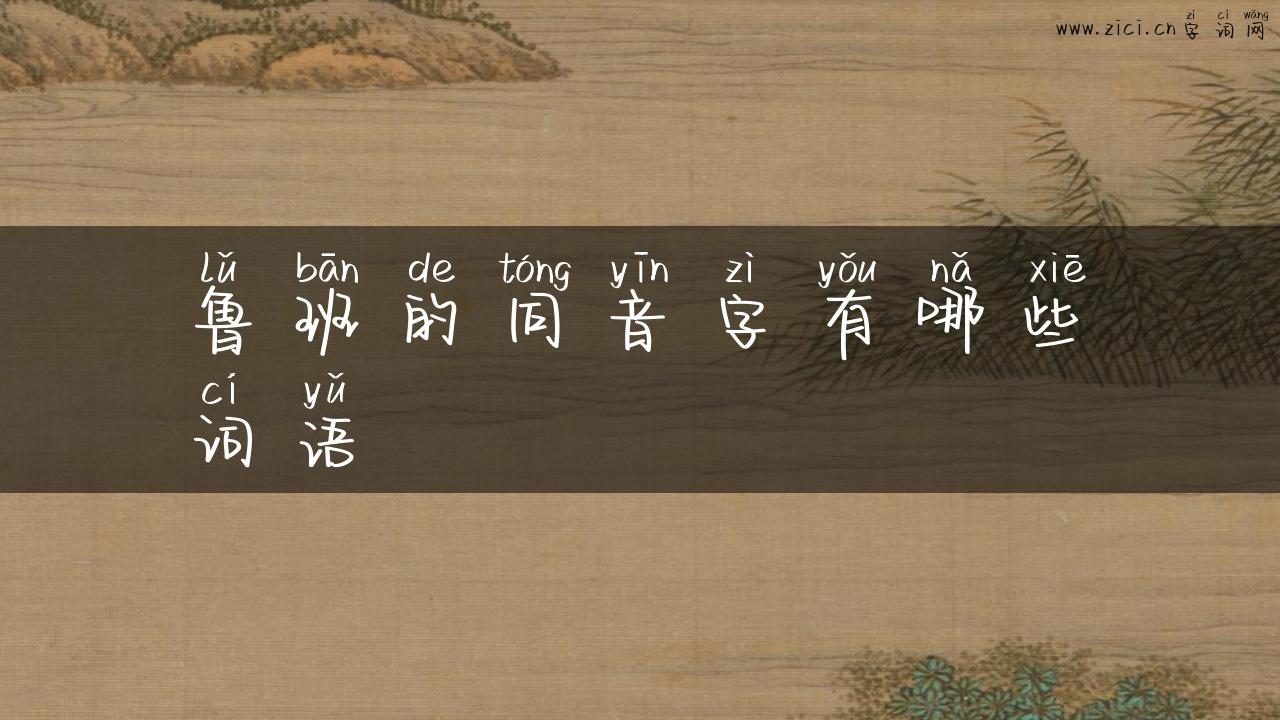 zì cí wǎng
www.zici.cn 字词网
lǔ bān de tóng yīn zì yǒu nǎ xiē
鲁班的同音字有哪些
cí yǔ
词语